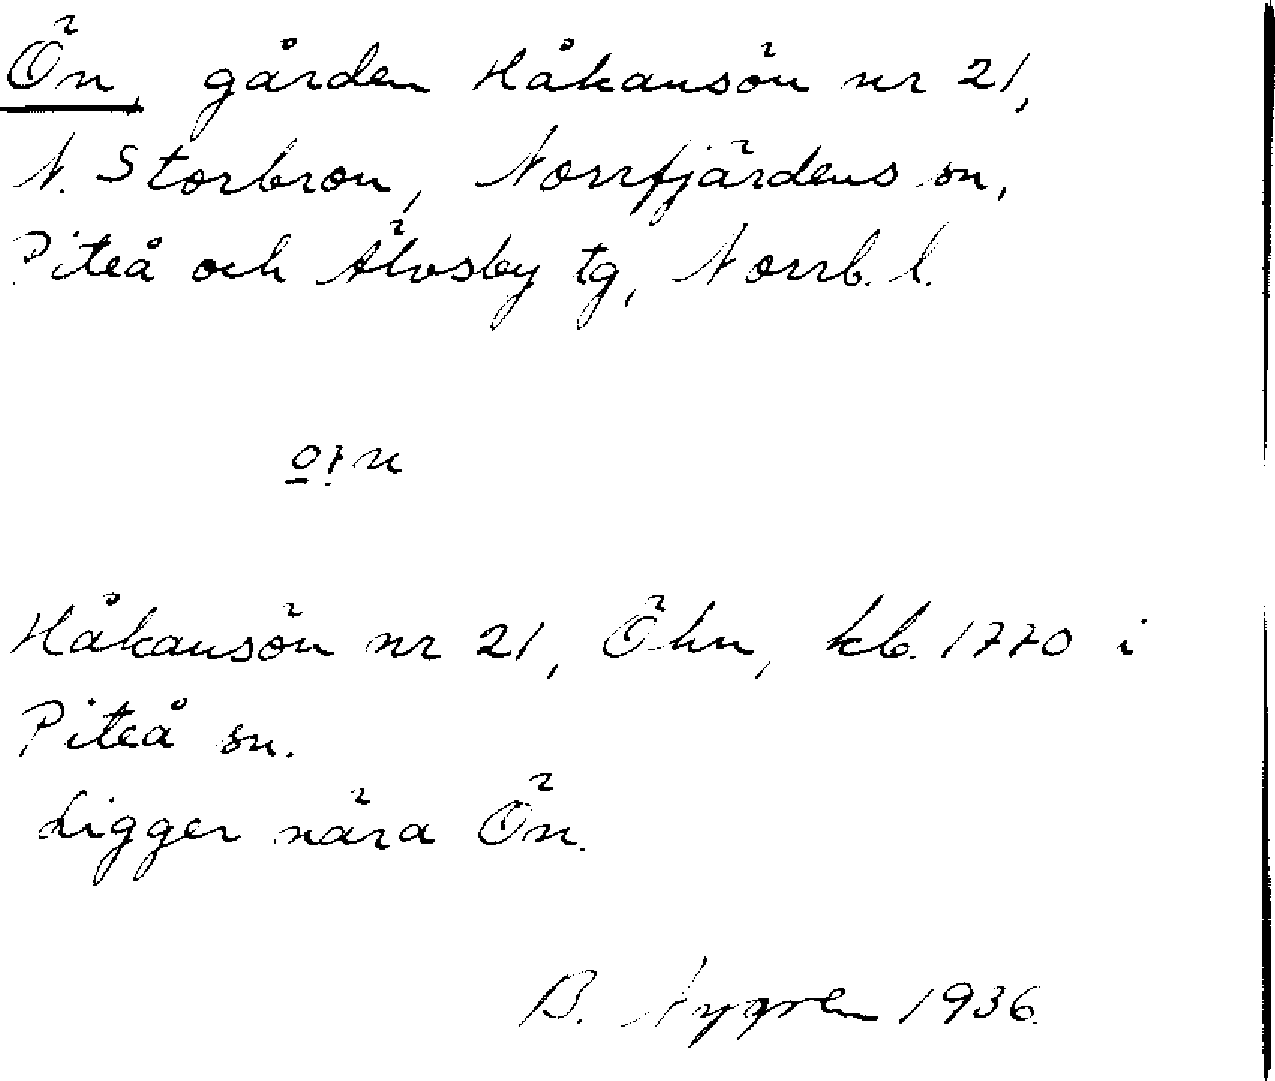 Ön, gården Håkansön nr 21,
N. Storbron, Norrfjärdens sn,
Piteå och Älvsby tg, Norrb. l.
Håkansön nr 21, Öhn, kb. 1770 i
Piteå sn.
Ligger nära Ön.
B. Nygren 1936.